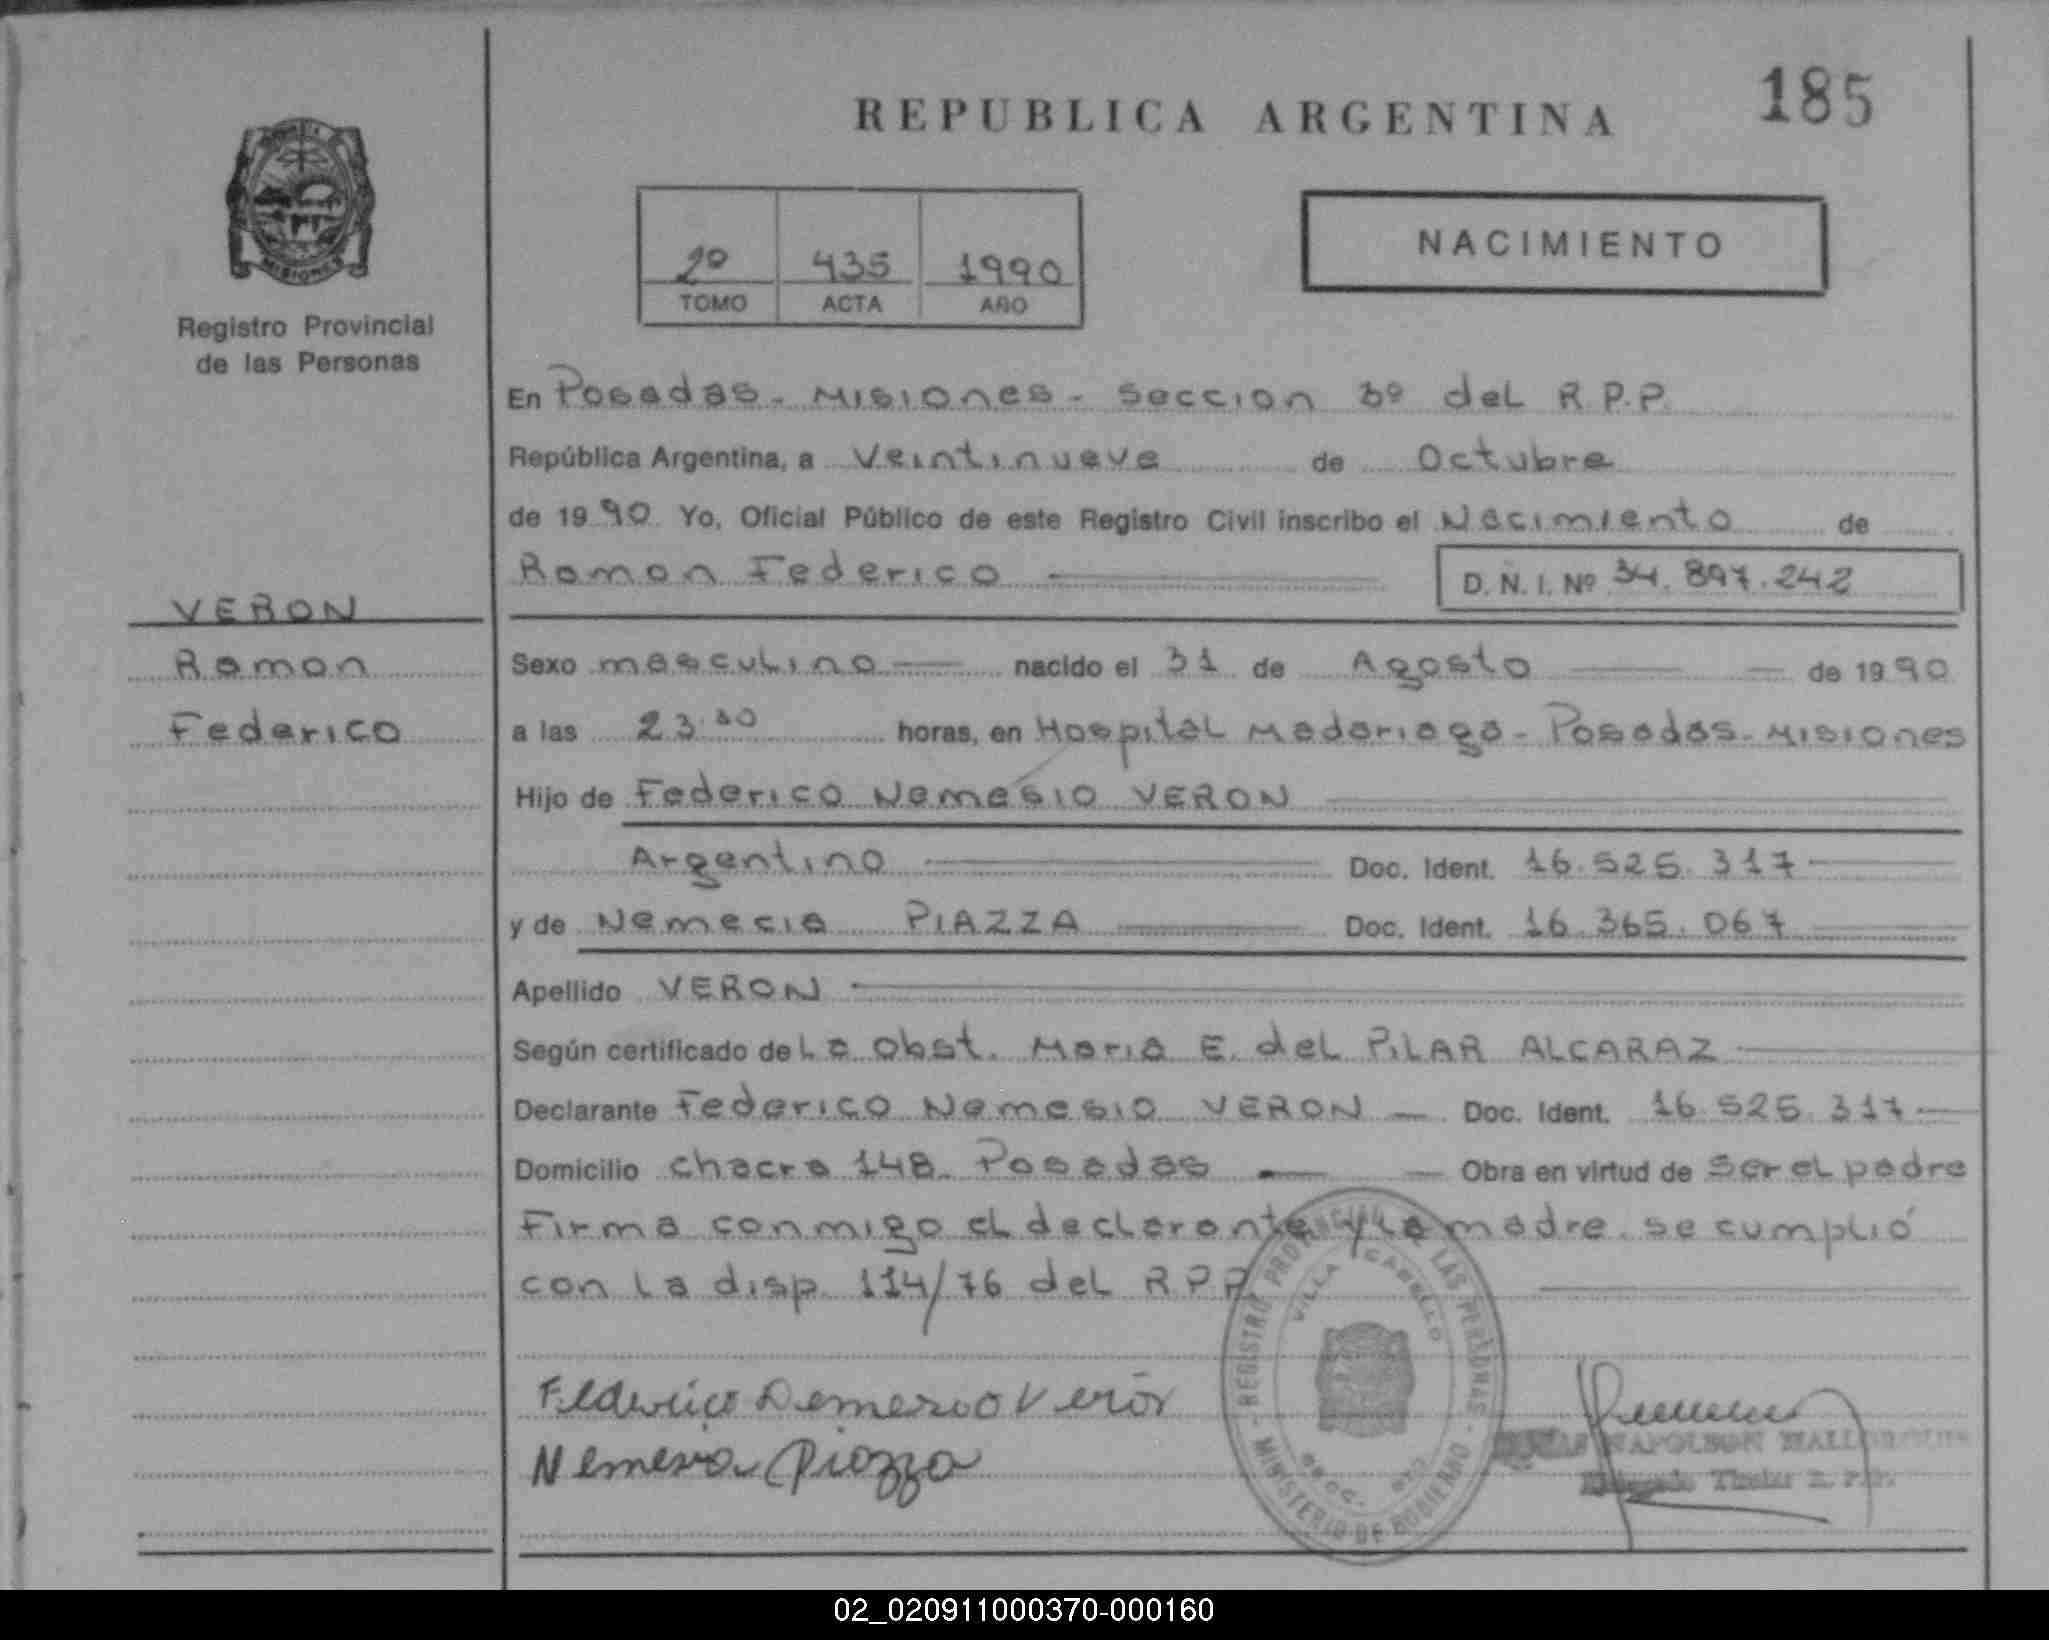 185
REPUBLICA ARGENTINA
MISIONES
Registro Provincial
de las Personas
2º 435 1990
TOMO ACTA AÑO
NACIMIENTO
En Posadas - Misiones - Seccion 3º del R.P.P.
República Argentina, a Veintinueve de Octubre
de 1990 Yo, Oficial Público de este Registro Civil inscribo el Nacimiento de
Ramon Federico D.N.I. Nº 34.897.242
VERON
Ramon
Federico
Sexo masculino nacido el 31 de Agosto de 1990
a las 23.30 horas, en Hospital Madariaga - Posadas - Misiones
Hijo de Federico Nemesio VERON
Argentino Doc. Ident. 16.525.317
y de Nemecia PIAZZA Doc. Ident. 16.365.067
Apellido VERON
Según certificado de La Obst. Maria E. del PILAR ALCARAZ
Declarante Federico Nemesio VERON Doc. Ident. 16.525.317
Domicilio chacra 148 - Posadas Obra en virtud de ser el padre
Firma conmigo el declarante y la madre. se cumplió
con la disp. 114/76 del R.P.P
Federico Nemesio Verón
Nemesia Piazza
REGISTRO PROVINCIAL DE LAS PERSONAS - MINISTERIO DE GOBIERNO -
VILLA CABELLO
NAPOLEON
Titular R.P.P.
02_020911000370-000160